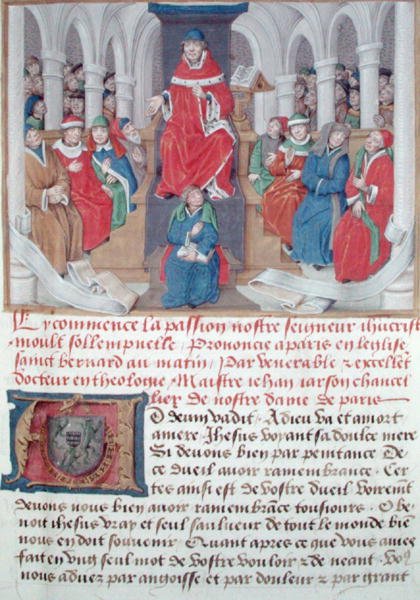 Cy commence la passion nostre seigneur ihucrist
moult sollempnelle / Prononcie a paris en leglise
sainct bernard au matin / Par venerable & excellet
docteur en theologie / Maistre iehan iarson chancel
lier de nostre dame de paris
A Deum vadit / A dieu va et a mort
amere. Ihesus voyant sa doulce mere
Si deuons bien par penitance De
ce dueil auoir ramembrance. Cer
tes ainsi est de vostre dueil voiremt
deuons nous bien auoir ramembrāce tousiours. O be
noit ihesus vray et seul saulueur de tout le monde bie
nous en doit souuenir Quant apres ce que vous auiez
fait en vng seul mot de vostre vouloir & de neant. Vo9
nous aduez par angoisse et par douleur & par grant